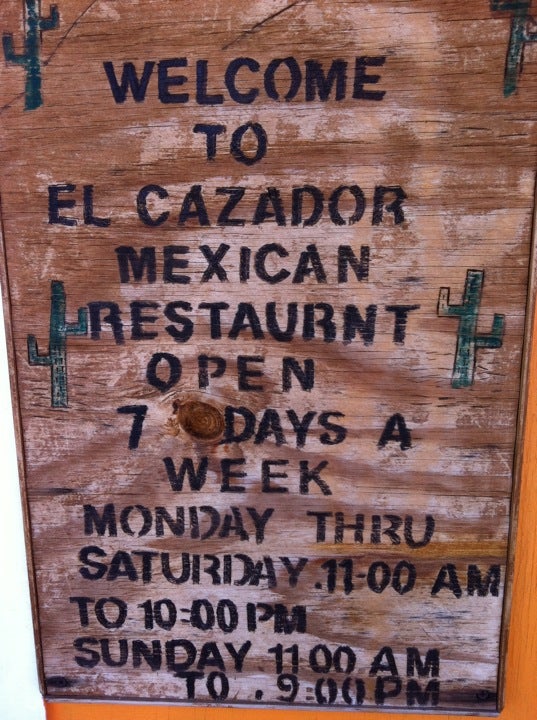 WELCOME
TO
EL CAZADOR
MEXICAN
RESTAURNT
OPEN
7 DAYS A
WEEK
MONDAY THRU
SATURDAY.11-00 AM
TO 10:00 PM
SUNDAY 11 00 AM
TO . 9:00 PM